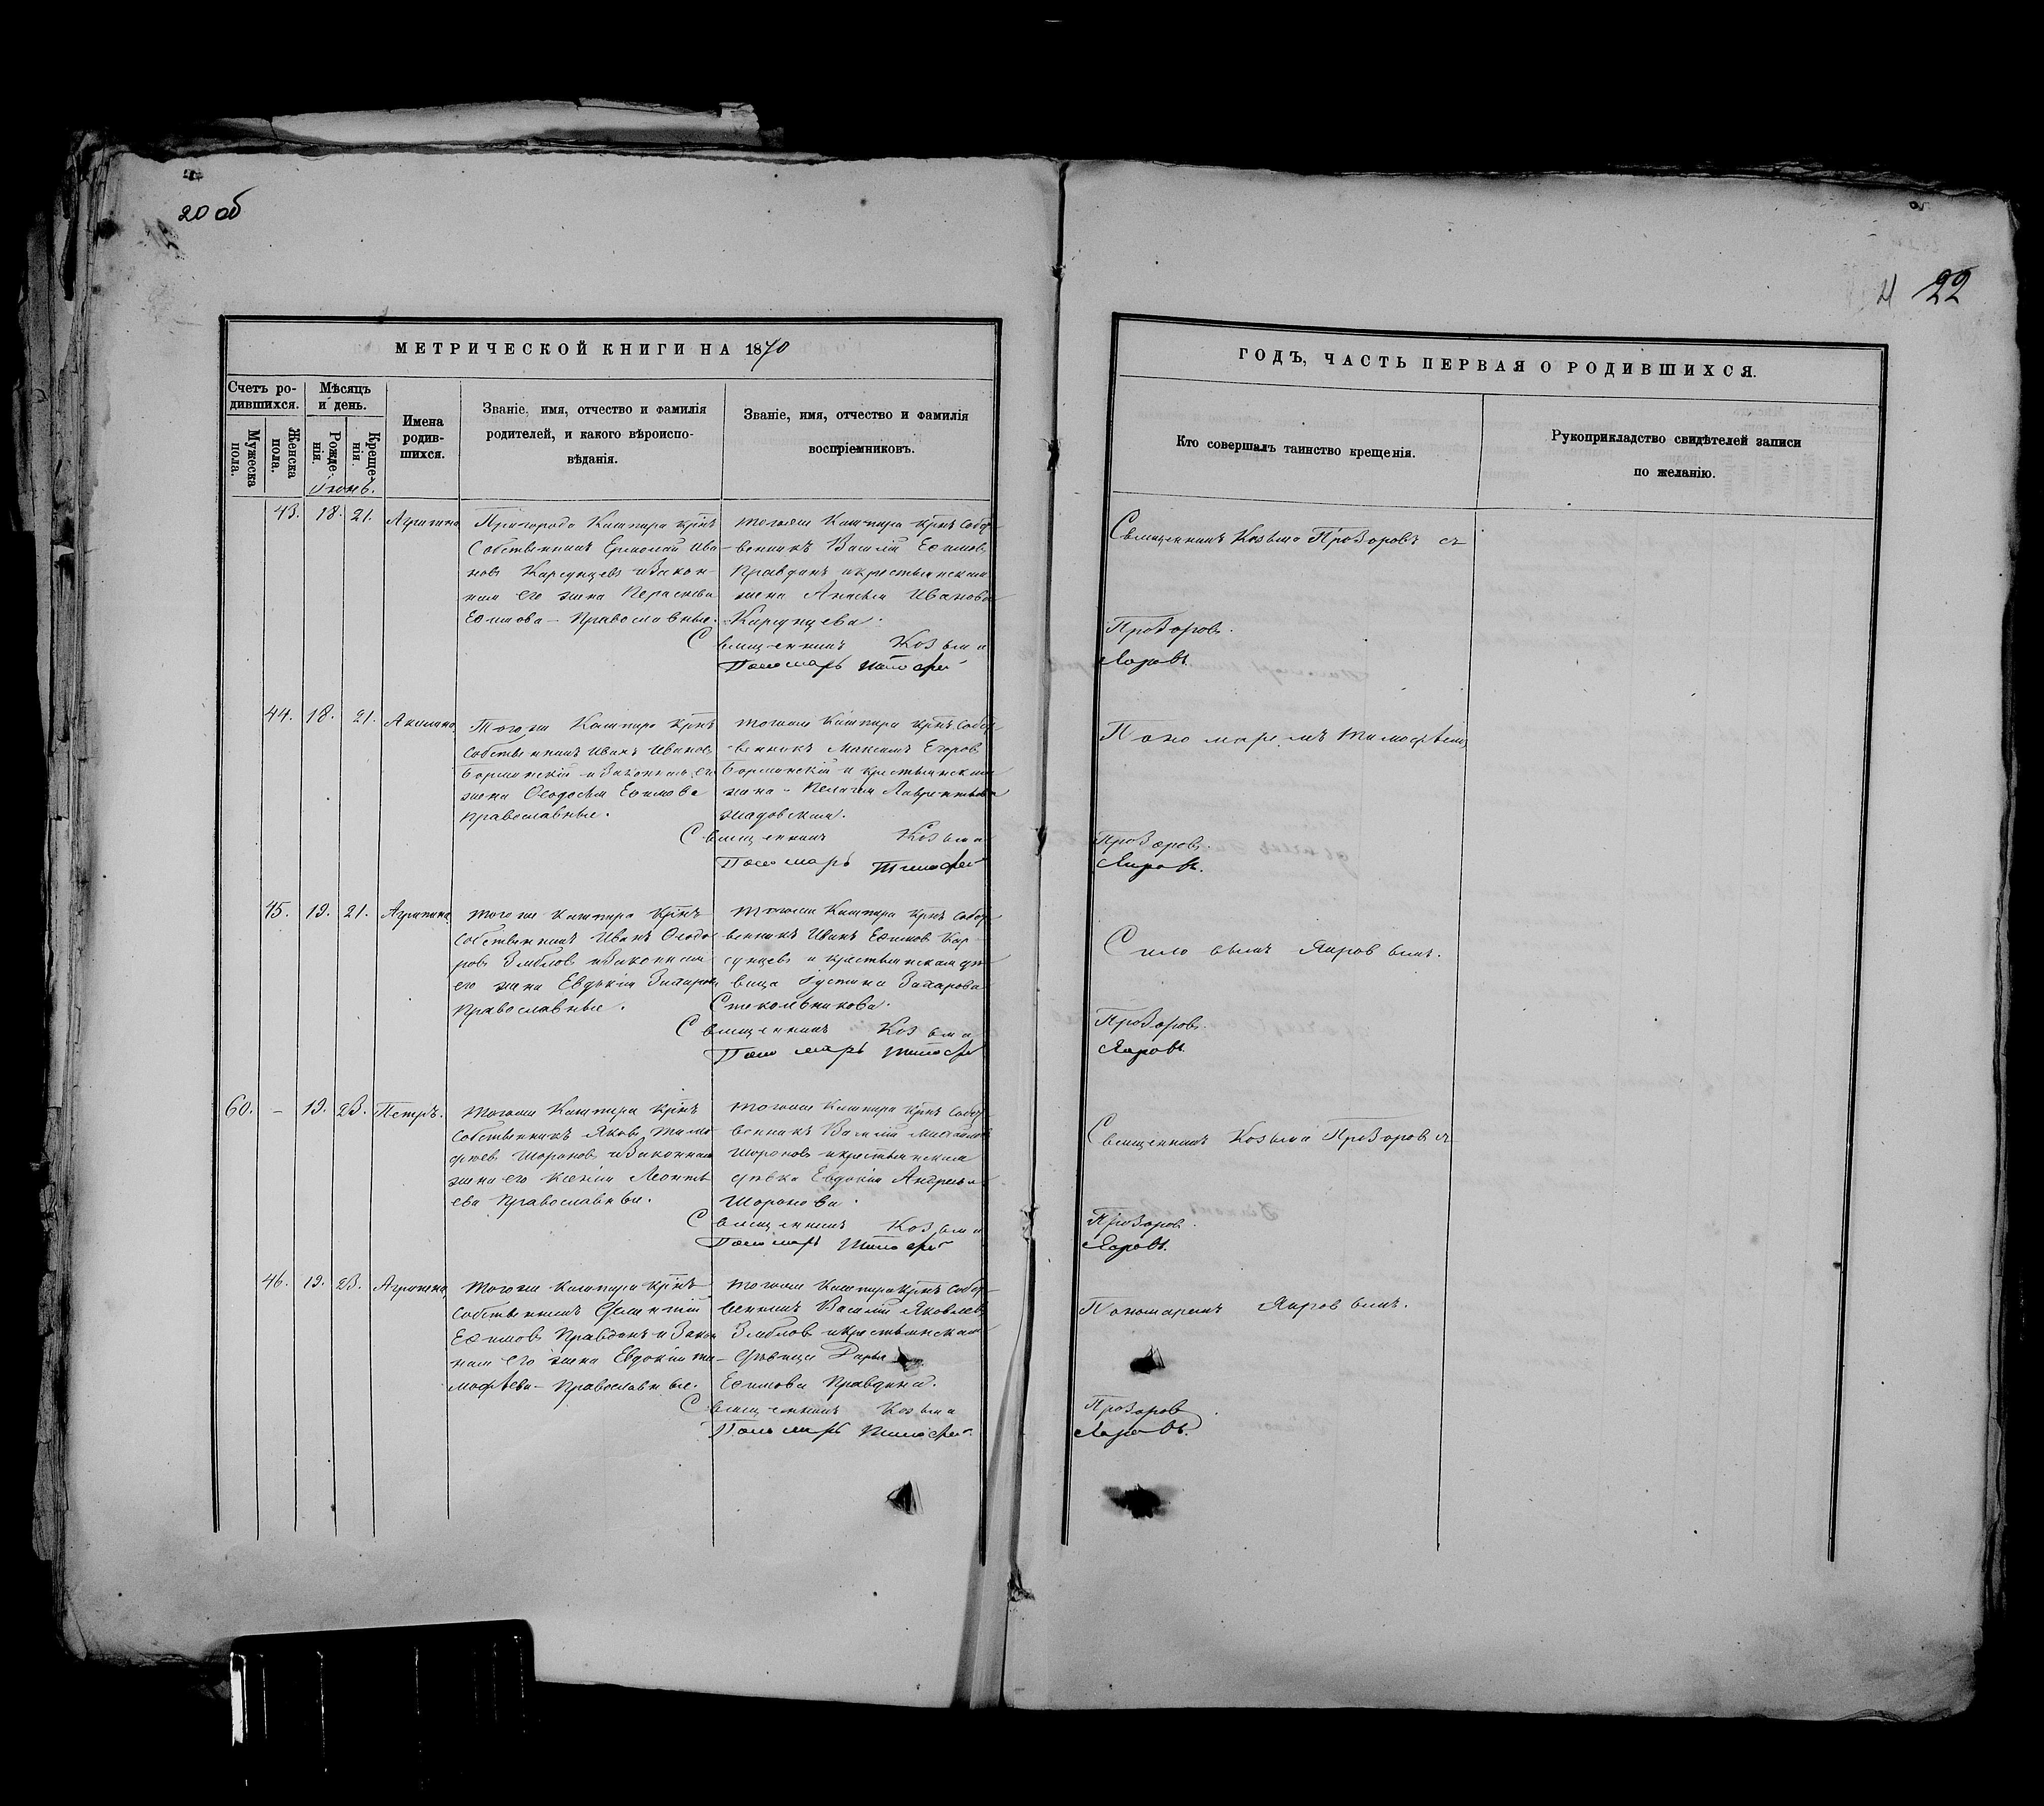 20 об
21 22
МЕТРИЧЕСКОЙ КНИГИ НА 1870
ГОДЪ, ЧАСТЬ ПЕРВАЯ О РОДИВШИХСЯ.
Счетъ ро-
дившихся.
Мужеска
пола.
Женска
пола.
Мѣсяцъ
и день.
Рожде-
нія.
Креще-
нія.
Имена
родив-
шихся.
Званіе, имя, отчество и фамилія
родителей, и какого вѣроиспо-
вѣданія.
Званіе, имя, отчество и фамилія
воспріемниковъ.
Кто совершалъ таинство крещенія.
Рукоприкладство свидѣтелей записи
по желанію.
Іюнь.
43. 18. 21. Агрипина
Пригорода Кашпира крнъ
собственникъ Ермолай Ива
новъ Карсунцевъ и закон-
ная его жена Параскева
Ефимова - Православные.
тогоже Кашпира крнъ собст
венникъ Василій Ефимовъ
Правдинъ и крестьянская
жена Анисья Иванова
Карсунцева.
Священникъ Козьма Прозоровъ съ
Священникъ Козьма Прозоровъ.
Пономарь Тимофей Яировъ.
44. 18. 21. Акилина
Тогоже Кашпира крнъ
собственникъ Иванъ Ивановъ
Борминскій и законная его
жена Ѳеодосья Ефимова
православные.
тогоже Кашпира крнъ собст
венникъ Максимъ Егоровъ
Борминскій и крестьянская
жена - Пелагея Лаврентьева
Жадовская.
Пономаремъ Тимофѣемъ
Священникъ Козьма Прозоровъ.
Пономарь Тимофей Яировъ.
45. 19. 21. Агрипина
тогоже Кашпира крнъ
собственникъ Иванъ Ѳеодо
ровъ Зябловъ и законная
его жена Евдокія Захарова
православные.
тогоже Кашпира крнъ собст
венникъ Иванъ Ефимовъ Кар
сунцевъ и крестьянская дѣ
вица Іустина Захарова
Стекольникова.
Силовымъ Яировымъ.
Священникъ Козьма Прозоровъ.
Пономарь Тимофей Яировъ.
60. - 19. 23. Петръ.
тогоже Кашпира крнъ
собственникъ Яковъ Тимо
фѣевъ Шороновъ и законная
жена его Ксенія Леонть
ева православные.
тогоже Кашпира крнъ собст
венникъ Василій Михайловъ
Шороновъ и крестьянская
дѣвка Евдокія Андреева
Шоронова.
Священникъ Козьма Прозоровъ съ
Священникъ Козьма Прозоровъ.
Пономарь Тимофей Яировъ.
46. 19. 23. Агрипина
тогоже Кашпира крнъ
собственникъ
Ефимовъ Правдинъ и закон
ная его жена Евдокія Ти
мофѣева - православные.
тогоже Кашпира крнъ собст
венникъ Василій Яковлевъ
Зябловъ и крестьянская
дѣвица Дарья
Ефимова Правдина.
Пономаремъ Яировымъ.
Священникъ Козьма Прозоровъ.
Пономарь Тимофей Яировъ.